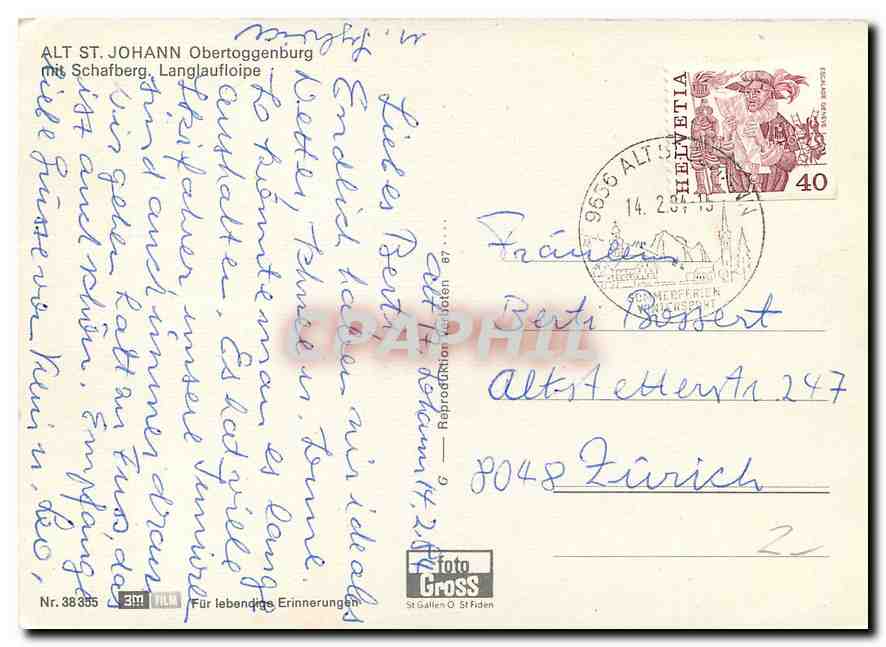 ALT ST. JOHANN Obertoggenburg
mit Schafberg, Langlaufloipe
Alt St. Johann 14.2.84
Liebes Berti,
Endlich haben wir ideales
Wetter, Schnee u. Sonne.
So könnte man es lange
aushalten. Es hat viele
Skifahrer unsere Junioren
sind auch immer dran
Wir gehen halt zu Fuss, das
ist auch schön. Empfange
liebe Grüsse von u. Leo,
u.
Reproduktion verboten 67
9
HELVETIA
ESCALADE GENÈVE
40
9656 ALT ST. JOHANN
14. 2.84-15
SOMMERFERIEN
WINTERSPORT
Fräulein
Berti Bossert
Altstetterstr. 247
8048 Zürich
2
CPAPHIL
foto
Gross
St Gallen O St Fiden
Nr. 38355
3m FILM
Für lebendige Erinnerungen